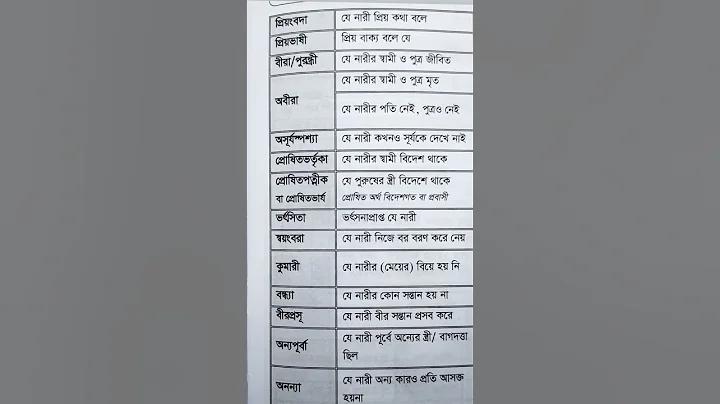 প্রিয়ংবদা যে নারী প্রিয় কথা বলে
প্রিয়ভাষী প্রিয় বাক্য বলে যে
বীরা/পুরন্ধ্রী যে নারীর স্বামী ও পুত্র জীবিত
অবীরা যে নারীর স্বামী ও পুত্র মৃত
যে নারীর পতি নেই, পুত্রও নেই
অসূর্যস্পশ্যা যে নারী কখনও সূর্যকে দেখে নাই
প্রোষিতভর্তৃকা যে নারীর স্বামী বিদেশ থাকে
প্রোষিতপত্নীক যে পুরুষের স্ত্রী বিদেশে থাকে
বা প্রোষিতভার্য প্রোষিত অর্থ বিদেশগত বা প্রবাসী
ভর্ৎসিতা ভর্ৎসনাপ্রাপ্ত যে নারী
স্বয়ংবরা যে নারী নিজে বর বরণ করে নেয়
কুমারী যে নারীর (মেয়ের) বিয়ে হয় নি
বন্ধ্যা যে নারীর কোন সন্তান হয় না
বীরপ্রসূ যে নারী বীর সন্তান প্রসব করে
অন্যপূর্বা যে নারী পূর্বে অন্যের স্ত্রী/ বাগদত্তা
ছিল
অনন্যা যে নারী অন্য কারও প্রতি আসক্ত
হয়না